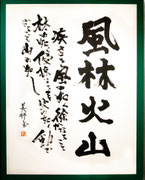 風林火山
疾きこと風の如く徐かなること
林の如く侵掠すること火の如く動か
ざること山の如し